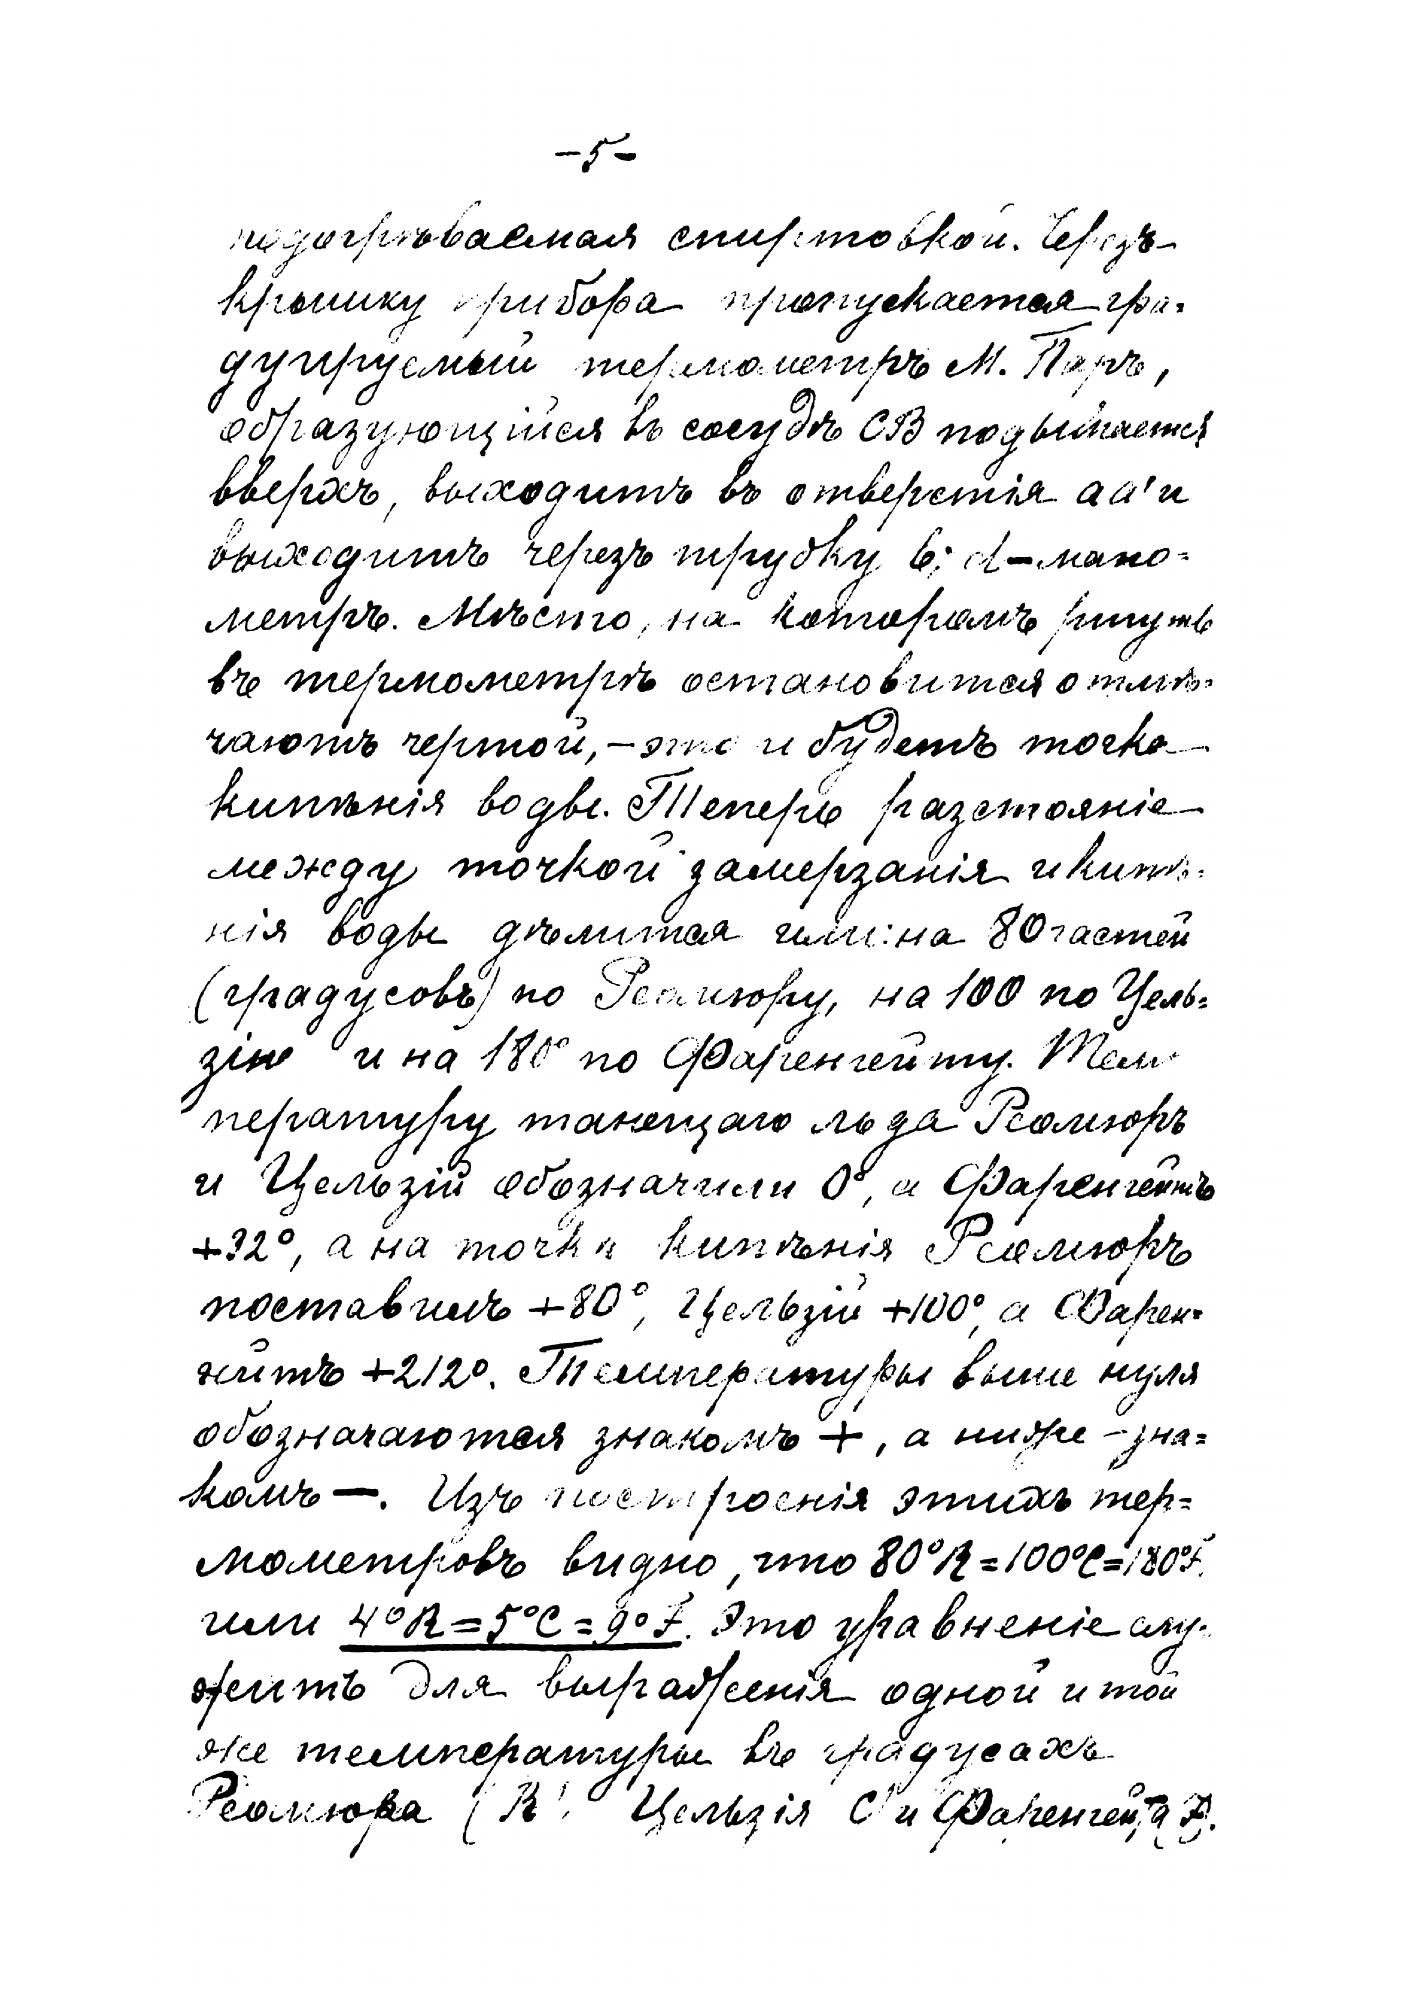 –5–
подогрѣваемая спиртовкой. Черезъ
крышку прибора пропускается гра=
дуируемый термометръ М. Паръ,
образующійся въ сосудѣ СВ подымается
вверхъ, выходитъ въ отверстія аа' и
выходитъ черезъ трубку b; d – мано=
метръ. Мѣсто, на которомъ ртуть
въ термометрѣ остановится отмѣ=
чаютъ чертой, – это и будетъ точка
кипѣнія воды. Теперь разстояніе
между точкой замерзанія и кипѣ=
нія воды дѣлится или: на 80 частей
(градусовъ) по Реомюру, на 100 по Цель=
зію и на 180° по Фаренгейту. Тем
пературу тающаго льда Реомюръ
и Цельзій обозначили 0°, а Фаренгейтъ
+32°, а на точки кипѣнія Реомюръ
поставилъ +80°, Цельзій +100°, а Фарен=
гейтъ +212°. Температуры выше нуля
обозначаются знакомъ +, а ниже – зна=
комъ –. Изъ построенія этихъ тер=
мометровъ видно, что 80°R = 100°C = 180°F.
или 4°R = 5°C = 9°F. Это уравненіе слу=
житъ для выраженія одной и той
же температуры въ градусахъ
Реомюра (R) Цельзія С и Фаренгейта F.